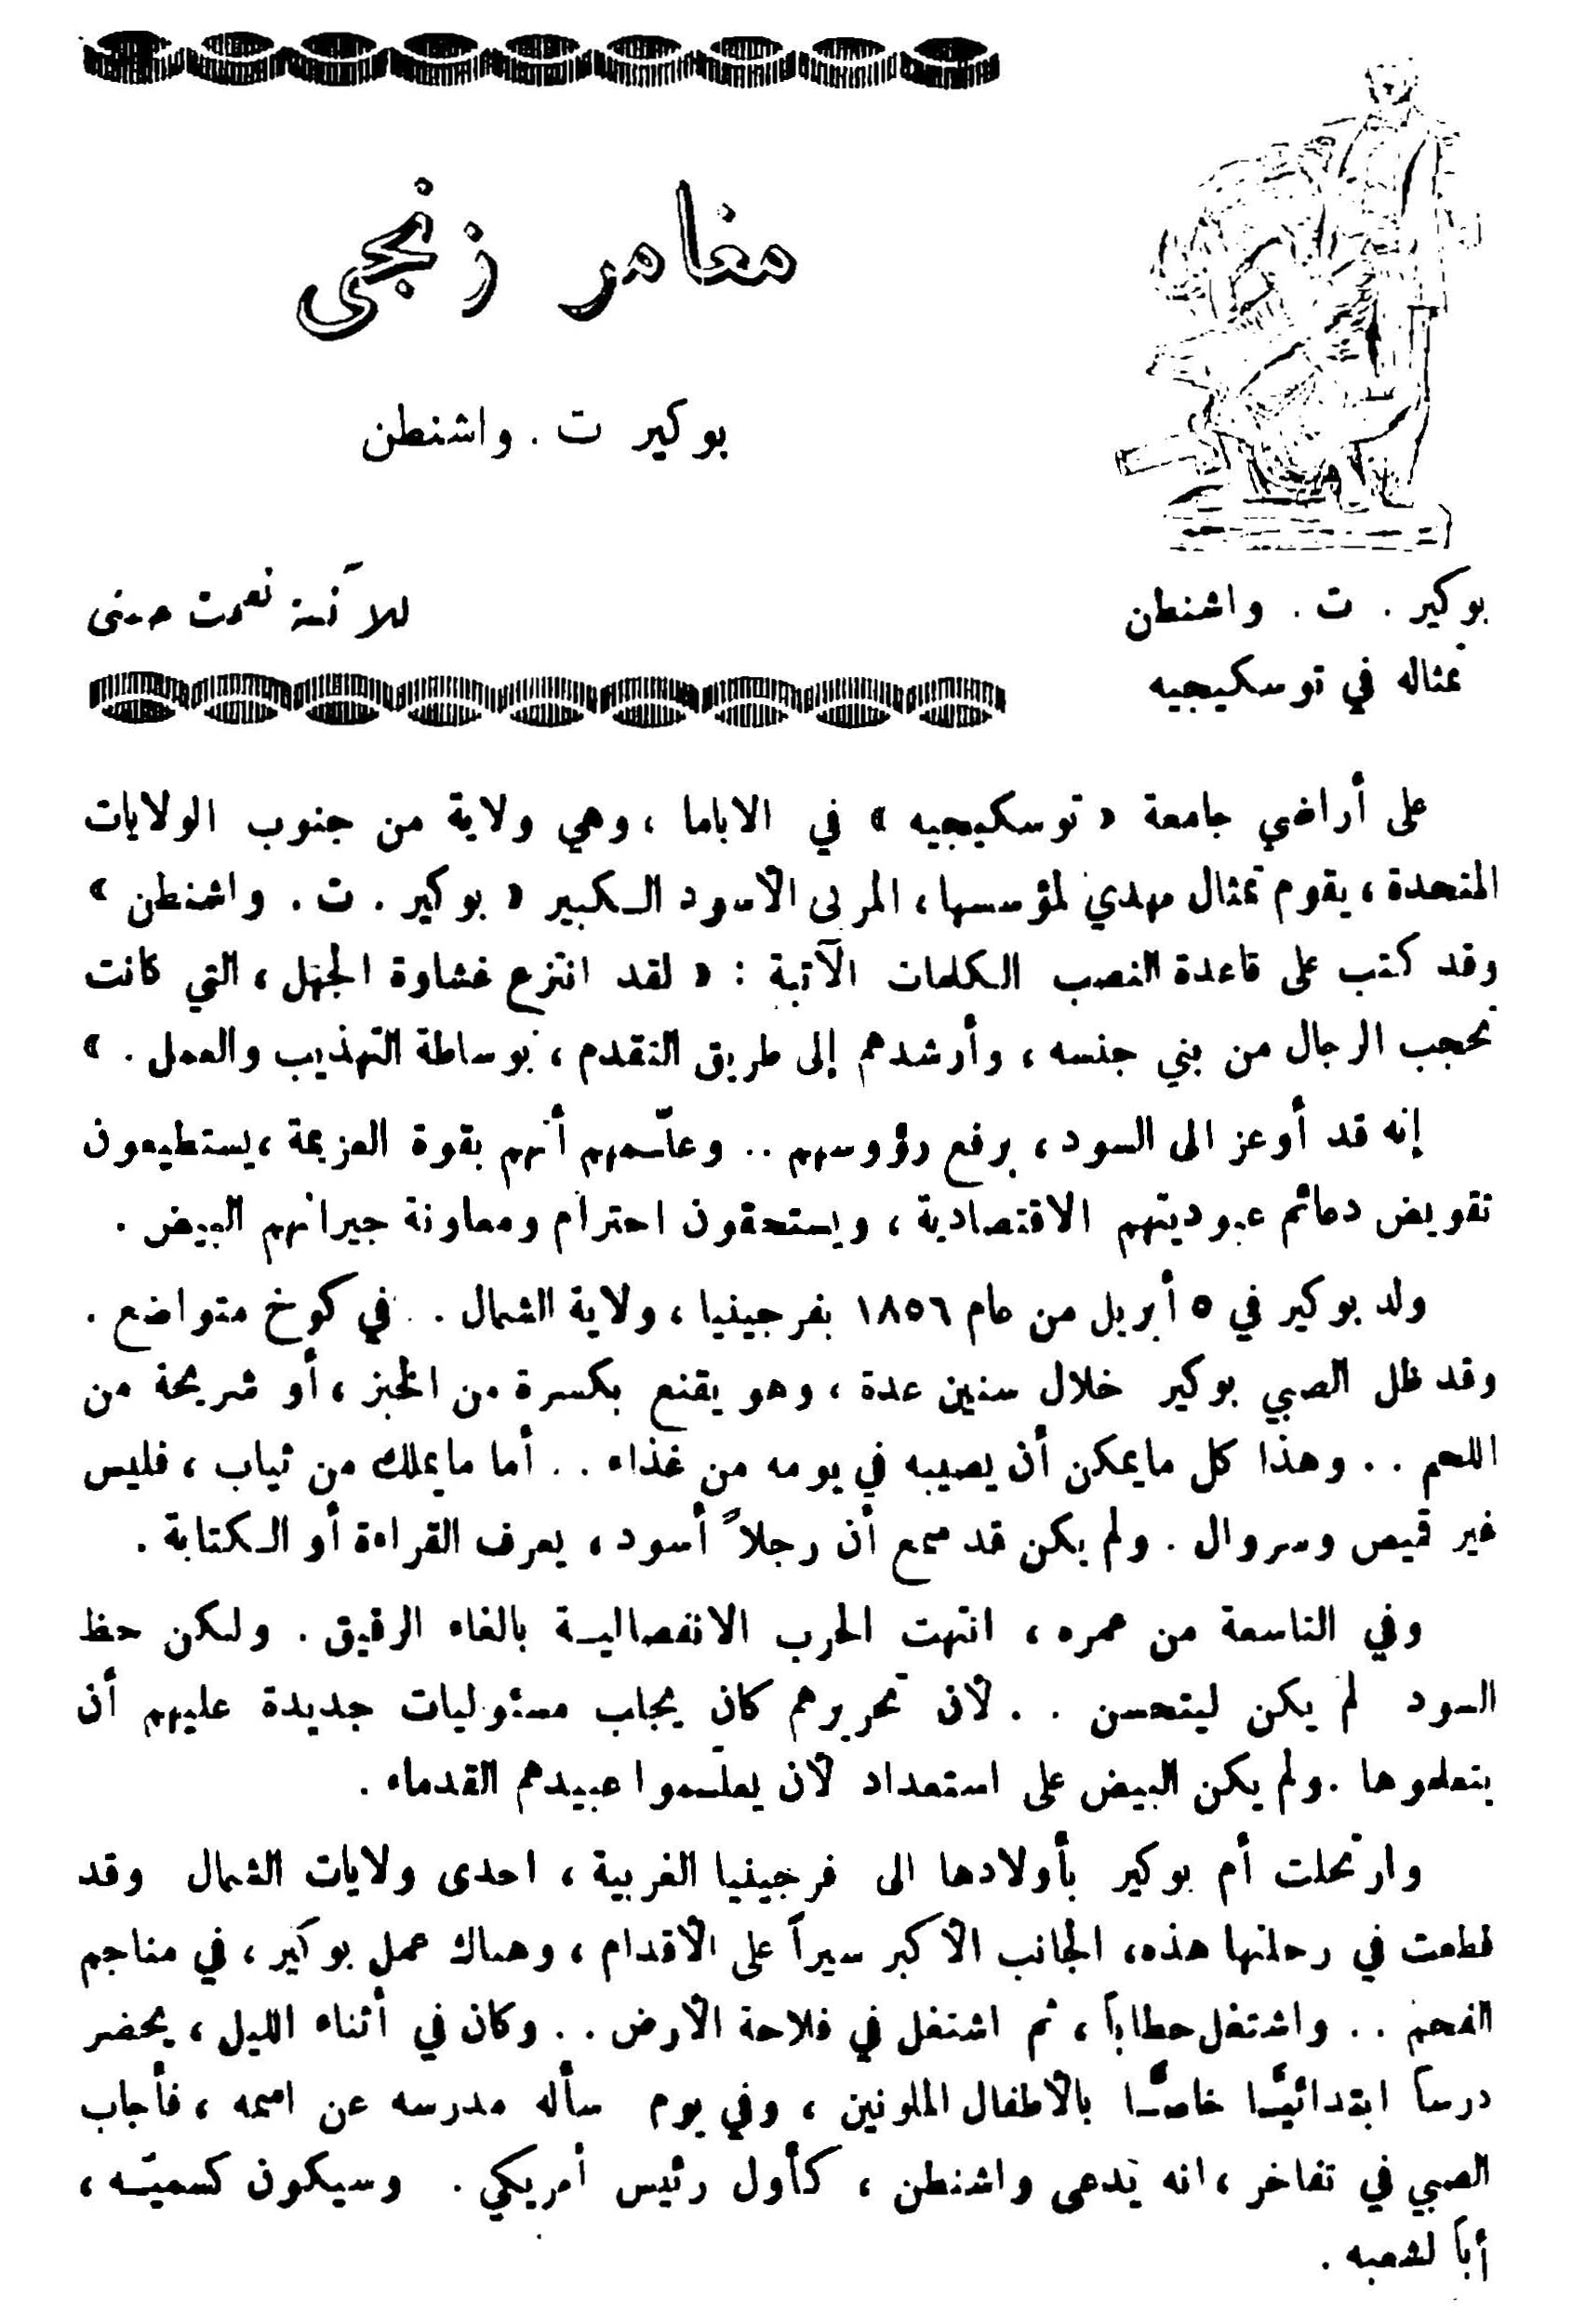 مغامر زنجى
بوكير ت. واشنطن
للآنسة نعمت حسنى
بوكير. ت. واشنطن
تمثاله في توسكيجيه
على أراضي جامعة « توسكيجيه » في الاباما ، وهي ولاية من جنوب الولايات
المتحدة ، يقوم تمثال مهدي لمؤسسها ، المربى الأسود الكبير « بوكير. ت. واشنطن »
وقد كتب على قاعدة النصب الكلمات الآتية : « لقد انتزع غشاوة الجهل ، التي كانت
تحجب الرجال من بني جنسه ، وأرشدهم إلى طريق التقدم ، بوساطة التهذيب والعمل . »
إنه قد أوعز الى السود ، برفع رؤوسهم .. وعلّمهم أنهم بقوة العزيمة ، يستطيعون
تقويض دعائم عبوديتهم الاقتصادية ، ويستحقون احترام ومعاونة جيرانهم البيض .
ولد بوكير في ٥ أبريل من عام ١٨٥٦ بفرجينيا ، ولاية الشمال . . في كوخ متواضع .
وقد ظل الصبي بوكير خلال سنين عدة ، وهو يقنع بكسرة من الخبز ، أو شريحة من
اللحم .. وهذا كل مايمكن أن يصيبه في يومه من غذاء .. أما مايملك من ثياب ، فليس
غير قميص وسروال . ولم يكن قد سمع أن رجلاً أسود ، يعرف القراءة أو الكتابة .
وفي التاسعة من عمره ، انتهت الحرب الانفصالية بالغاء الرقيق . ولكن حظ
السود لم يكن ليتحسن .. لأن تحريرهم كان يجلب مسئوليات جديدة عليهم أن
يتعلموها . ولم يكن البيض على استعداد لأن يعلّموا عبيدهم القدماء .
وارتحلت أم بوكير بأولادها الى فرجينيا الغربية ، احدى ولايات الشمال وقد
قطعت في رحلتها هذه ، الجانب الأكبر سيراً على الأقدام ، وهناك عمل بوكير ، في مناجم
الفحم .. واشتغل حطاباً ، ثم اشتغل في فلاحة الأرض .. وكان في أثناء الليل ، يحضر
درساً ابتدائيًّا خاصًّا بالأطفال الملونين ، وفي يوم سأله مدرسه عن اسمه ، فأجاب
الصبي في تفاخر ، انه يُدعى واشنطن ، كأول رئيس أمريكي . وسيكون كسميّه ،
أباً لشعبه .